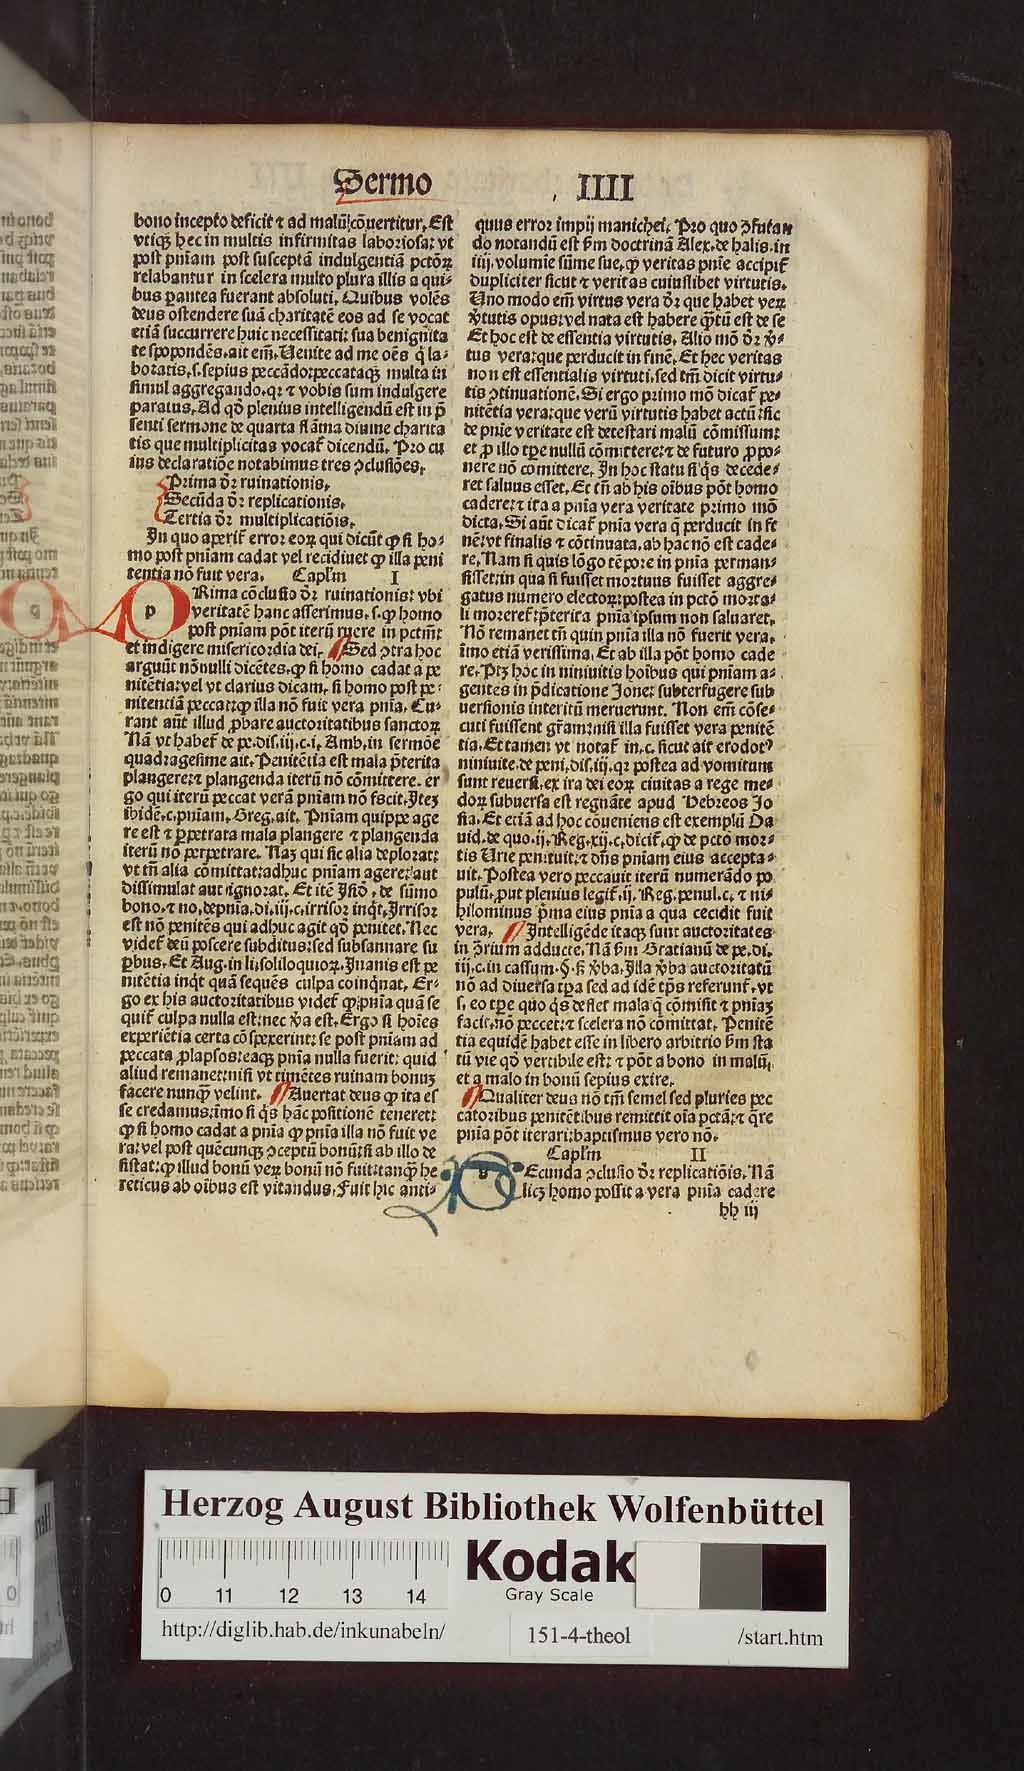 Sermo IIII
bono incepto deficit ⁊ ad malũ cõuertitur. Est
vtiqꝫ hec in multis infirmitas laboriosa: vt
post pniam post susceptã indulgentiã pctõꝝ
relabantur in scelera multo plura illis a qui⸗
bus pantea fuerant absoluti. Quibus volẽs
deus ostendere suã charitatẽ eos ad se vocat
etiã succurrere huic necessitati: sua benignita
te spopondẽs. ait em̃. Uenite ad me oẽs q̃ la⸗
boratis. s. sepius peccãdo: peccataqꝫ multa in
simul aggregando. qꝛ ⁊ vobis sum indulgere
paratus. Ad qd̃ plenius intelligendũ est in p̃
senti sermone de quarta flãma diuine charita
tis que multiplicitas vocat̃ dicendũ. Pro cu
ius declaratiõe notabimus tres ꝯclusiões.
Prima dr̃ ruinationis.
Secũda dr̃ replicationis.
Tertia dr̃ multiplicatiõis.
In quo aperit̃ error eoꝝ qui dicũt ꝙ si ho⸗
mo post pniam cadat vel recidiuet ꝙ illa peni
tentia nõ fuit vera. Capl'm I
p Rima cõclusio dr̃ ruinationis: vbi
veritatẽ hanc asserimus. s. ꝙ homo
post pniam põt iterũ ruere in pctm̃:
et indigere misericordia dei. Sed ꝯtra hoc
arguũt nõnulli dicẽtes. ꝙ si homo cadat a pe
nitẽtia: vel vt clarius dicam. si homo post pe⸗
nitentiã peccat: ꝙ illa nõ fuit vera pnia. Cu⸗
rant aũt illud ꝓbare auctoritatibus sanctoꝝ
Nã vt habet̃ de pe. dis. iij. c. i. Amb. in sermõe
quadragesime ait. Penitẽtia est mala p̃terita
plangere: ⁊ plangenda iterũ nõ cõmittere. er
go qui iterũ peccat verã pniam nõ fecit. Iteꝫ
ibidẽ. c. pniam. Greg. ait. Pniam quippe age
re est ⁊ ꝑpetrata mala plangere ⁊ plangenda
iterũ nõ perpetrare. Naꝫ qui sic alia deplorat:
vt tñ alia comittat: adhuc pniam agere: aut
dissimulat aut ignorat. Et itẽ Isid. de sũmo
bono. ⁊ no. de pnia. di. iij. c. irrisor inqt̃. Irrisor
est nõ penitẽs qui adhuc agit qd̃ penitet. Nec
videt̃ deũ poscere subditus: sed subsannare su
ꝑbus. Et Aug. in li. soliloquioꝝ. Inanis est pe
nitẽtia inqt̃ quã sequẽs culpa coinq̃nat. Er⸗
go ex his auctoritatibus videt̃ ꝙ pnia quã se
quit̃ culpa nulla est: nec v̾a est. Ergo si hoĩes
experiẽtia certa cõspexerint: se post pniam ad
peccata ꝓlapsos: eaqꝫ pnia nulla fuerit: quid
aliud remanet: nisi vt timẽtes ruinam bonuꝫ
facere nunqꝫ velint. Auertat deus ꝙ ita es
se credamus: ĩmo si q̃s hãc positionẽ teneret:
ꝙ si homo cadat a pnia ꝙ pnia illa nõ fuit ve
ra: vel post quẽcunqꝫ ꝯceptũ bonũ: si ab illo de
sistat: ꝙ illud bonũ veꝝ bonũ nõ fuit: tanqꝫ he
reticus ab oĩbus est vitandus. Fuit hic anti⸗
quus error impij manichei. Pro quo ꝯfutan
do notandũ est s̾m doctrinã Alex. de halis. in
iiij. volumĩe sũme sue. ꝙ veritas pnie accipit̃
dupliciter sicut ⁊ veritas cuiuslibet virtutis.
Uno modo em̃ virtus vera dr̃ que habet veꝝ
v̾tutis opus: vel nata est habere q̃tũ est de se
Et hoc est de essentia virtutis. Alio mõ dr̃ v̾⸗
tus vera: que perducit in finẽ. Et hec veritas
non est essentialis virtuti. sed tm̃ dicit virtu⸗
tis ꝯtinuationẽ. Si ergo primo mõ dicat̃ pe⸗
nitẽtia vera: que verũ virtutis habet actũ: sic
de pnie veritate est detestari malũ cõmissum:
et ꝓ illo tp̃e nullũ cõmittere: ⁊ de futuro ꝓpo⸗
nere nõ comittere. In hoc statu si q̃s decede⸗
ret saluus esset. Et tñ ab his oĩbus põt homo
cadere: ⁊ ita a pnia vera veritate primo mõ
dicta. Si aũt dicat̃ pnia vera q̃ perducit in fi
nẽ: vt finalis ⁊ cõtinuata. ab hac nõ est cade⸗
re. Nam si quis lõgo tẽpore in pnia perman⸗
sisset: in qua si fuisset mortuus fuisset aggre⸗
gatus numero electoꝝ: postea in pctõ morta⸗
li moreret̃: p̃terita pnia ipsum non saluaret.
Nõ remanet tñ quin pnia illa nõ fuerit vera.
ĩmo etiã verissima. Et ab illa põt homo cade
re. Ptꝫ hoc in niniuitis hoĩbus qui pniam a⸗
gentes in p̃dicatione Jone: subterfugere sub
uersionis interitũ meruerunt. Non em̃ cõse⸗
cuti fuissent gr̃am: nisi illa fuisset vera penitẽ
tia. Et tamen vt notat̃ in. c. sicut ait erodotꝰ
niniuite. de peni. dis. iij. qꝛ postea ad vomitum
sunt reuersi. ex ira dei eoꝝ ciuitas a rege me⸗
doꝝ subuersa est regnãte apud Hebreos Jo
sia. Et etiã ad hoc cõueniens est exemplũ Da
uid. de quo. ij. Reg. xij. c. dicit̃. ꝙ de pctõ mor⸗
tis Urie penituit: ⁊ dñs pniam eius accepta⸗
uit. Postea vero peccauit iterũ numerãdo po
pulũ. ꝓut plenius legit̃. ij. Reg. penul. c. ⁊ ni⸗
hilominus p̃ma eius pnia a qua cecidit fuit
vera. Intelligẽde itaqꝫ sunt auctoritates
in ꝯ̃rium adducte. Nã s̾m Gratianũ de pe. di.
iij. c. in cassum. §. s̾. v̾ba. Illa v̾ba auctoritatũ
nõ ad diuersa tp̃a sed ad idẽ tp̃s referunt̃. vt
s. eo tp̃e quo q̃s deflet mala q̃ cõmisit ⁊ pniaꝫ
facit. nõ peccet: ⁊ scelera nõ cõmittat. Penitẽ
tia equidẽ habet esse in libero arbitrio s̾m sta
tũ vie qd̃ vertibile est: ⁊ põt a bono in malũ.
et a malo in bonũ sepius exire.
Qualiter deus nõ tm̃ semel sed pluries pec
catoribus penitẽtibus remittit oĩa pctã: ⁊ q̃re
pnia põt iterari: baptismus vero nõ.
Capl'm II
s Ecunda ꝯclusio dr̃ replicatiõis. Nã
licꝫ homo possit a vera pnia cadere
hh iij
Herzog August Bibliothek Wolfenbüttel
0 11 12 13 14
Kodak
Gray Scale
http://diglib.hab.de/inkunabeln/ 151-4-theol /start.htm